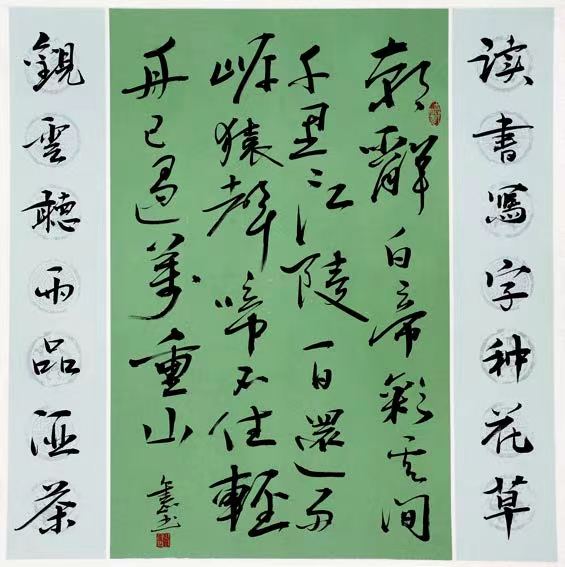 读書寫字种花草
朝辭白帝彩云间
千里江陵一日還两
岸猿聲啼不住輕
舟已過萬重山
觀雲聽雨品酒茶